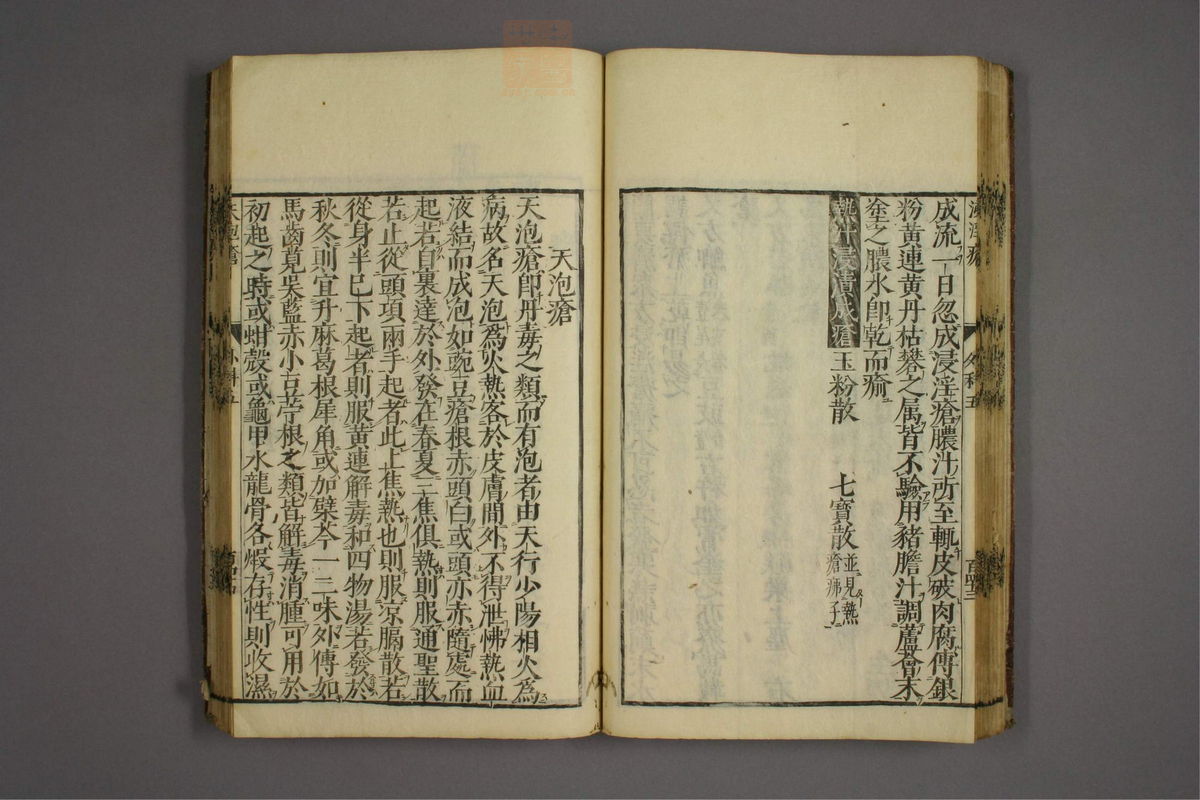 成流一日忽成浸淫瘡膿汁所至輒皮破肉腐傳銀
粉黃連黃丹枯礬之属皆不驗用豬膽汁調蘆薈末
塗之膿水即乾而瘉
熱汗浸漬成瘡 玉粉散 七寶散 並見熱
瘡痱子
天泡瘡
天泡瘡即丹毒之類而有泡者由天行少陽相火爲
病故名天泡爲火熱客於皮膚間外不得泄怫熱血
液結而成泡如豌豆瘡根赤頭白或頭亦赤隨處而
起若自裏達於外發在春夏三焦俱熱則服通聖散
若止從頭項兩手起者此上焦熱也則服凉膈散若
從身半巳下起者則服黃連解毒和四物湯若發於
秋冬則宜升麻葛根犀角或加檗芩一二味外傳如
馬齒莧吳藍赤小豆苧根之類皆解毒消腫可用於
初起之時或蚶殼或龜甲水龍骨各煅存性則收濕